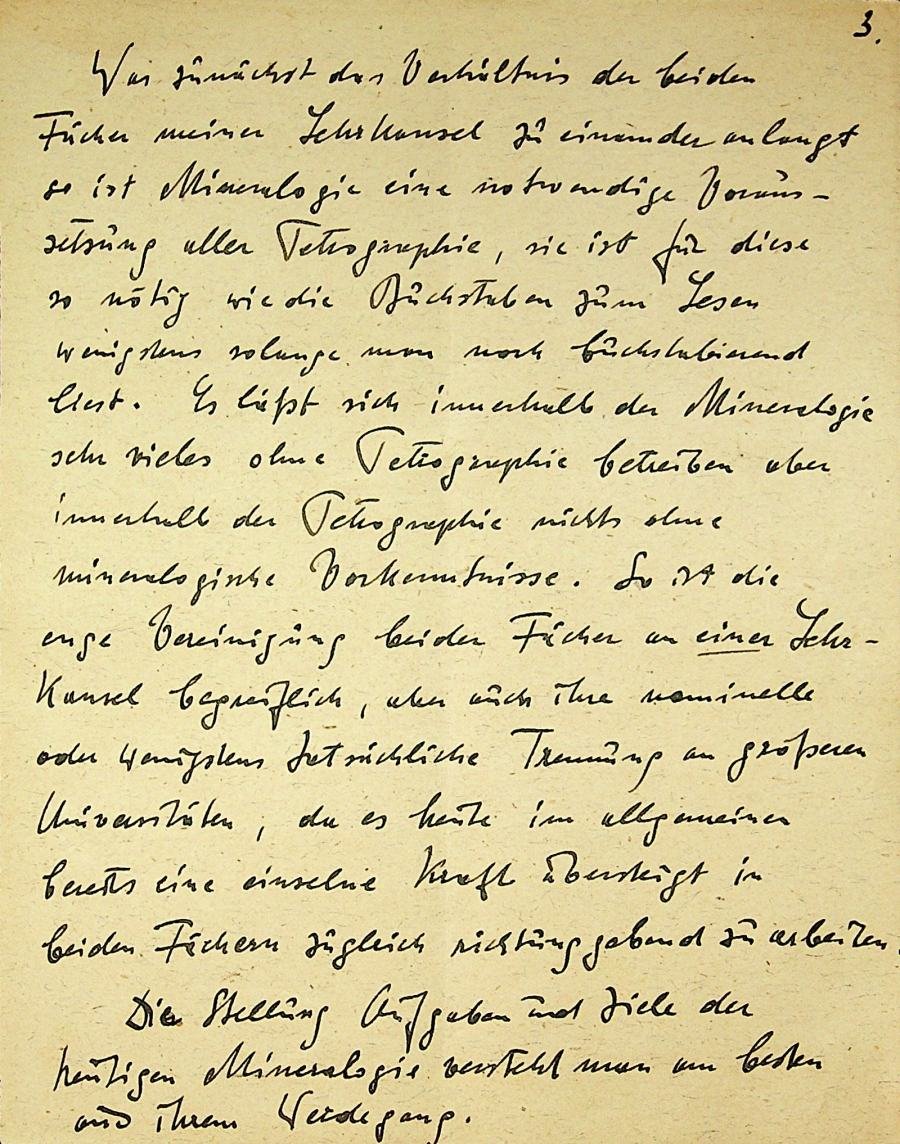 3.
Was zunächst das Verhältnis der beiden
Fächer meiner Lehrkanzel zu einander anlangt
so ist Mineralogie eine notwendige Voraus-
setzung aller Petrographie, sie ist für diese
so nötig wie die Buchstaben zum Lesen
wenigstens solange man noch buchstabierend
liest. Es läßt sich innerhalb der Mineralogie
sehr vieles ohne Petrographie betreiben aber
innerhalb der Petrographie nichts ohne
mineralogische Vorkenntnisse. So ist die
enge Vereinigung beider Fächer an einer Lehr-
kanzel begreiflich, aber auch ihre nominelle
oder wenigstens tatsächliche Trennung an größeren
Universitäten, da es heute im allgemeinen
bereits eine einzelne Kraft übersteigt in
beiden Fächern zugleich richtunggebend zu arbeiten.
Die Stellung Aufgaben und Ziele der
heutigen Mineralogie versteht man am besten
aus ihrem Werdegang.